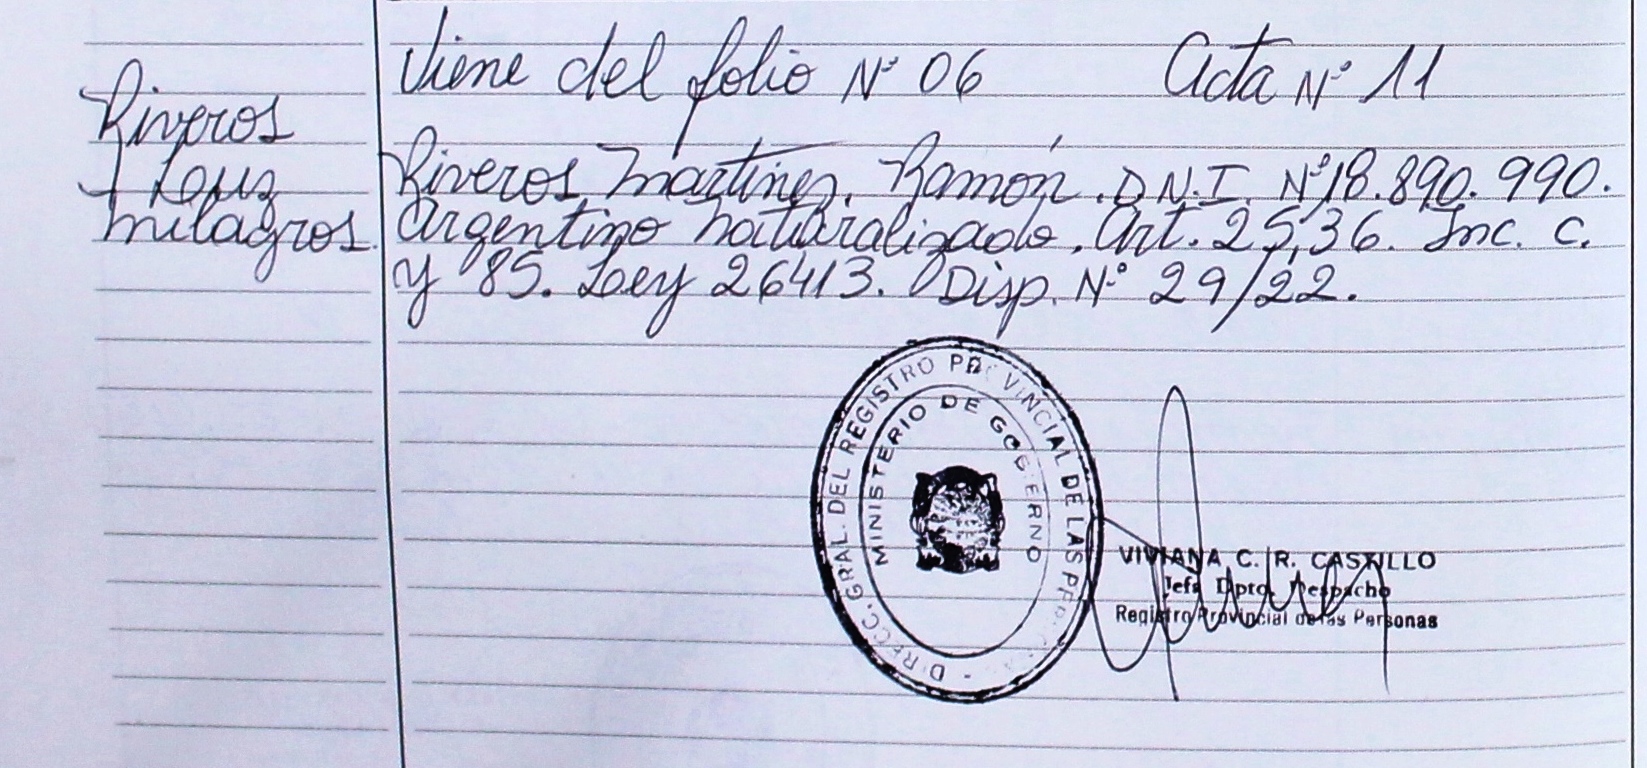 Viene del folio Nº 06 Acta Nº 11
Riveros
Luz
Milagros.
Riveros Martinez, Ramón. D.N.I. Nº 18.890.990.
Argentino naturalizado. Art. 25,36. Inc. c.
y 85. Ley 26413. Disp. Nº 29/22.
DIRECC. GRAL. DEL REGISTRO PROVINCIAL DE LAS
MINISTERIO DE GOBIERNO
VIVIANA C. R. CASTILLO
Jefa Dpto. Despacho
Registro Provincial de las Personas